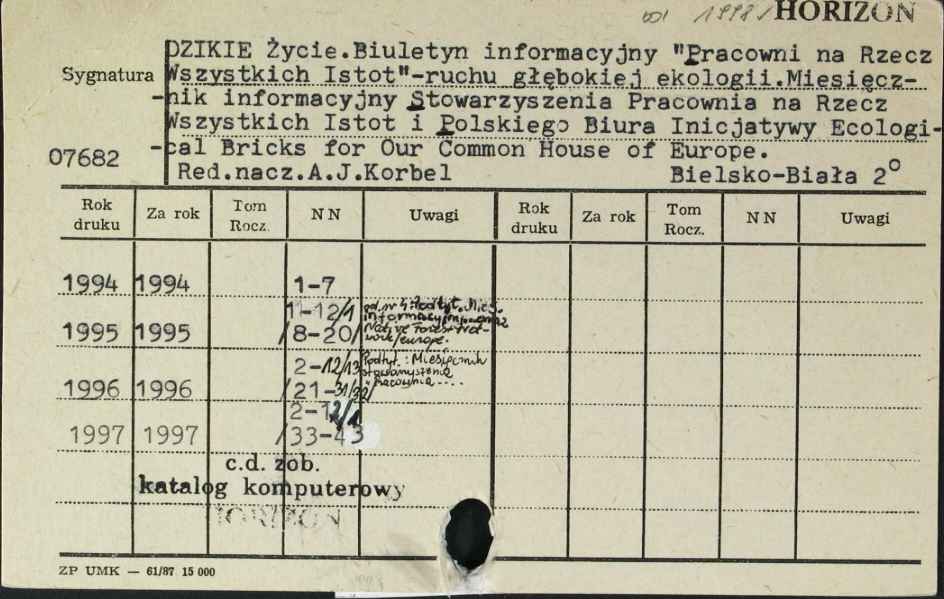 od 1998/ HORIZON
DZIKIE Życie.Biuletyn informacyjny "Pracowni na Rzecz
Sygnatura Wszystkich Istot"-ruchu głębokiej ekologii.Miesięcz-
-nik informacyjny Stowarzyszenia Pracownia na Rzecz
Wszystkich Istot i Polskiego Biura Inicjatywy Ecologi-
07682 -cal Bricks for Our Common House of Europe.
Red.nacz.A.J.Korbel Bielsko-Biała 2°
Rok druku Za rok Tom Rocz. NN Uwagi Rok druku Za rok Tom Rocz. NN Uwagi
1994 1994 1-7
1-12/1 od nr 4: Podtyt. Mies.
informacyjny
1995 1995 /8-20/ Native Forest Net-
work/Europe.
2-12/13 Podtyt.: Miesięcznik
Stowarzyszenia
1996 1996 /21-31/32/ Pracownia ....
2-12/1
1997 1997 /33-43
c.d. zob.
katalog komputerowy
HORIZON
ZP UMK — 61/87 15 000